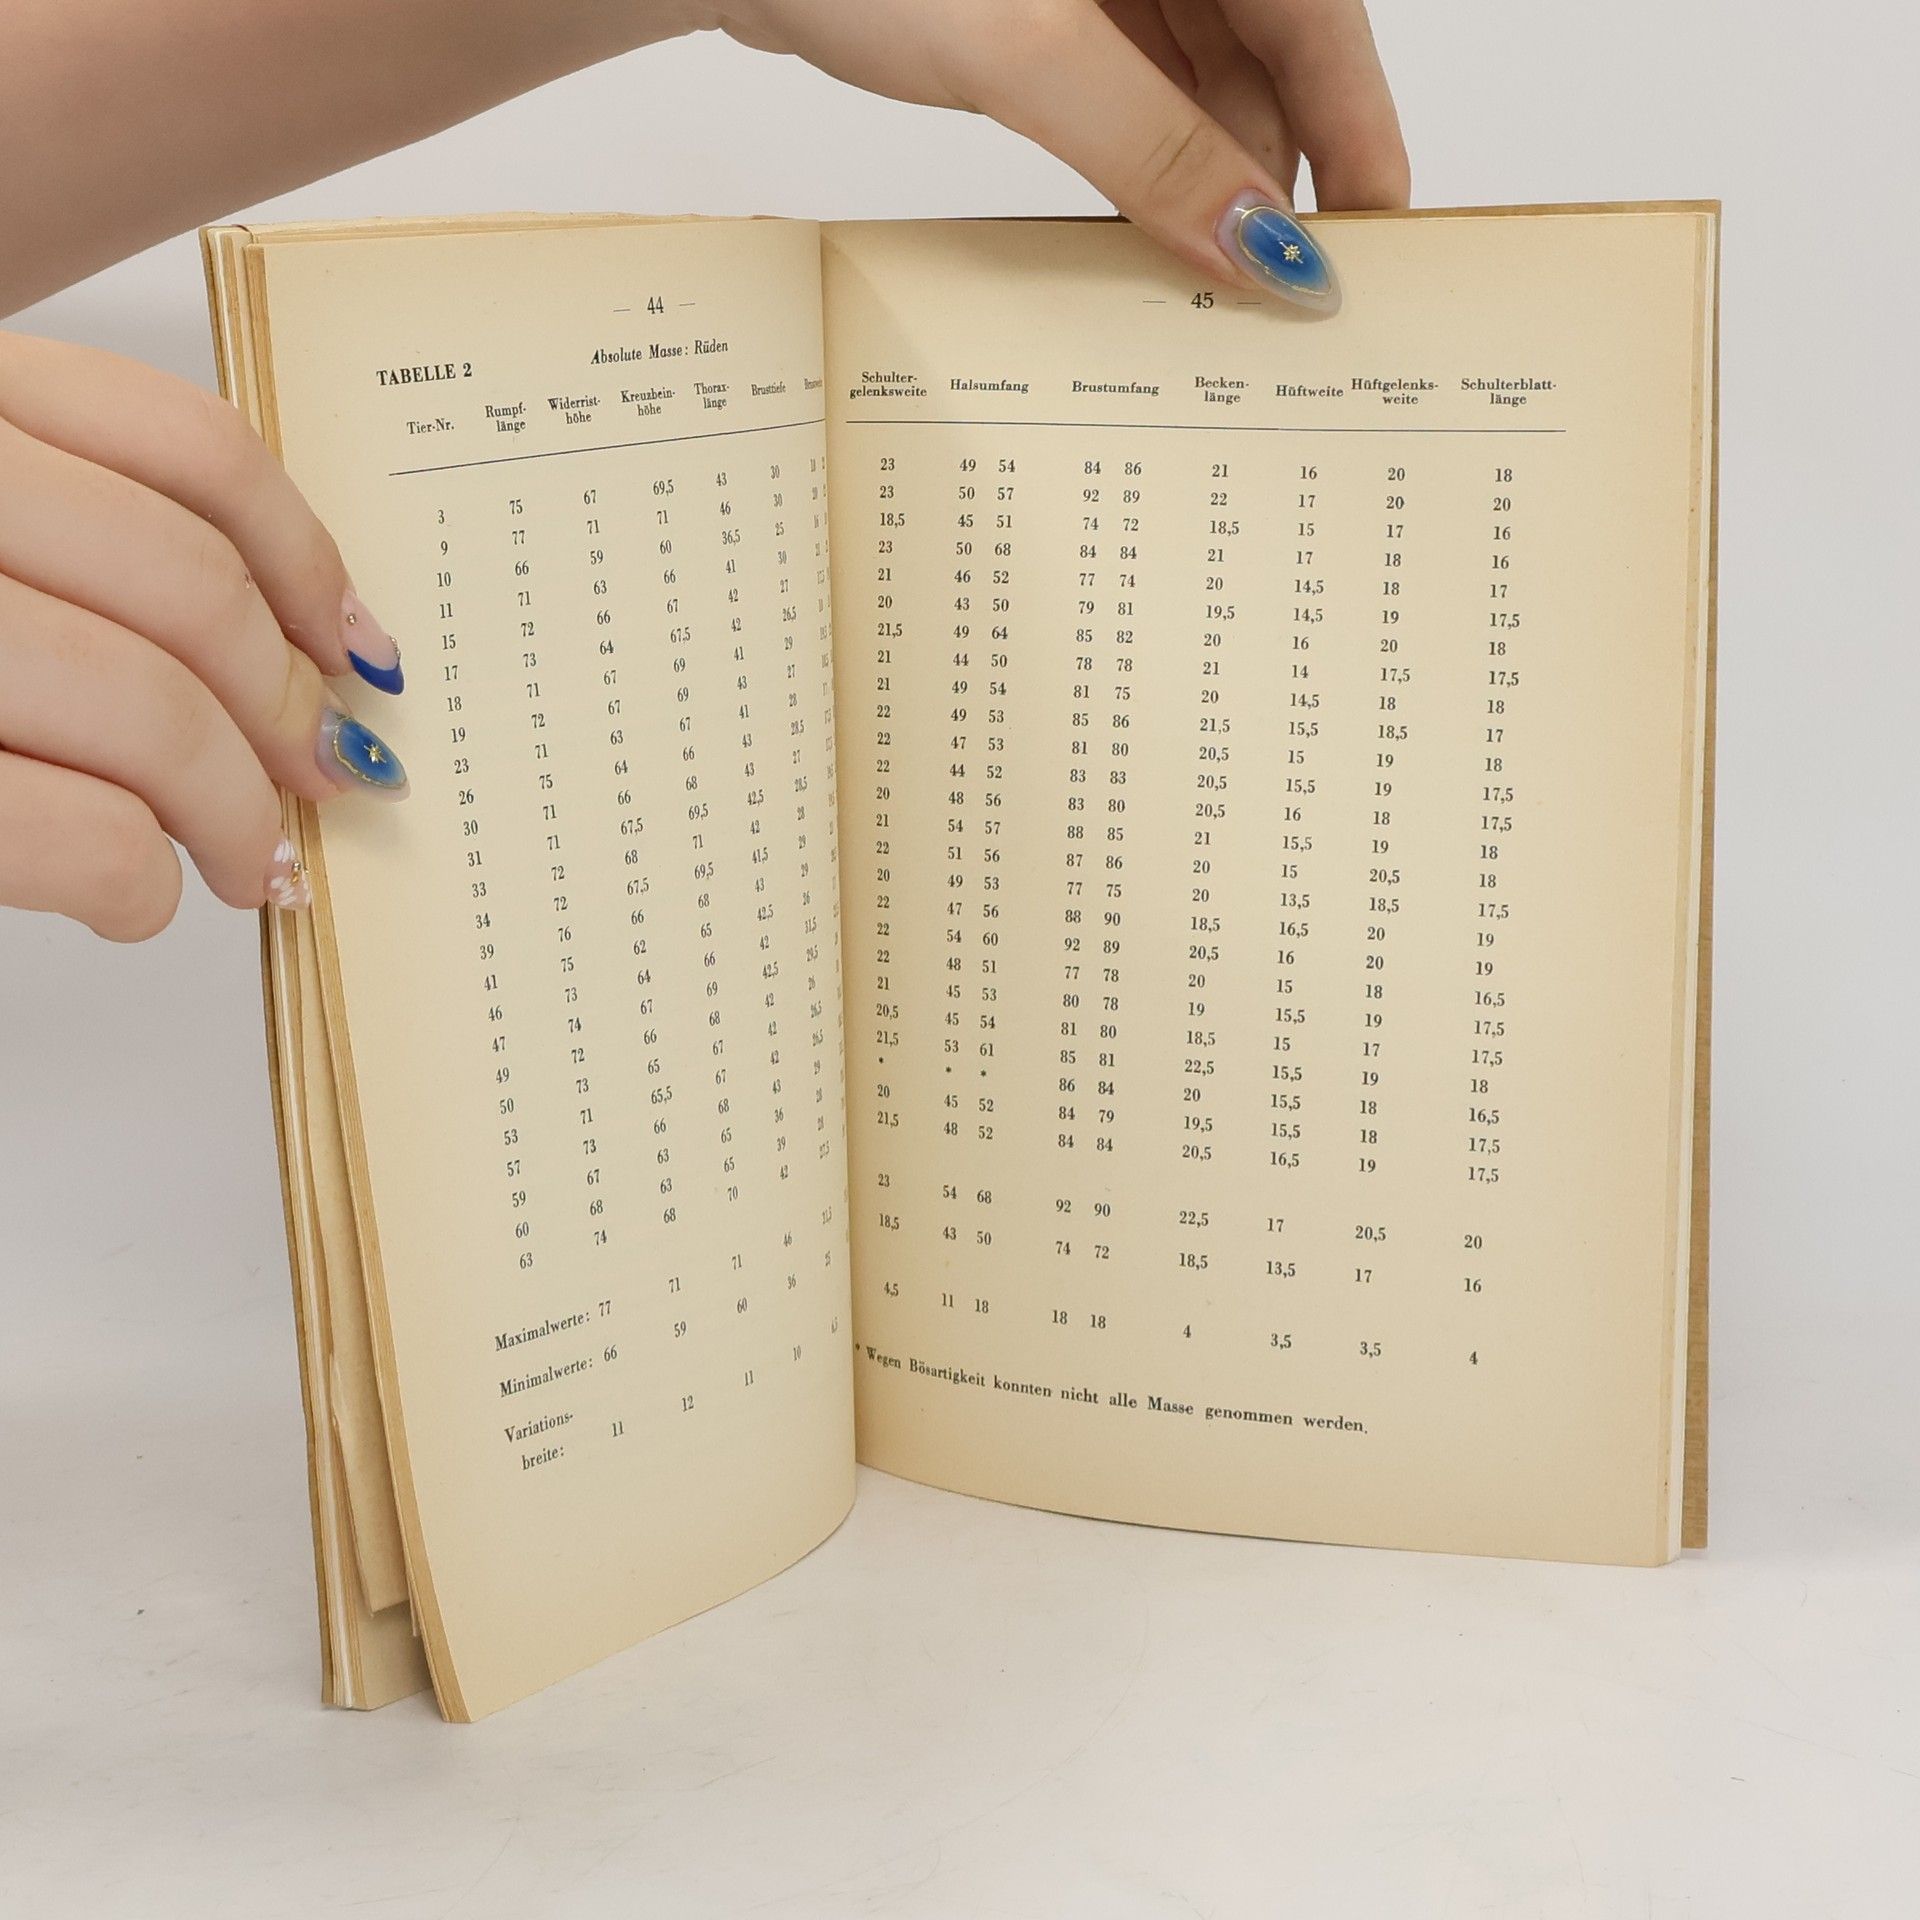 — 44 —
TABELLE 2
Absolute Masse: Rüden
Tier-Nr. Rumpf-länge Widerrist-höhe Kreuzbein-höhe Thorax-länge Brusttiefe
3 75 67 69,5 43 30
9 77 71 71 46 30
10 66 59 60 36,5 25
11 71 63 66 41 30
15 72 66 67 42 27
17 73 64 67,5 42 26,5
18 71 67 69 41 29
19 72 67 69 43 27
23 71 63 67 41 28
26 75 64 66 43 28,5
30 71 66 68 43 27
31 71 67,5 69,5 42,5 28,5
33 72 68 71 42 28
34 72 67,5 69,5 41,5 29
39 76 66 68 43 29
41 75 62 65 42,5 26
46 73 64 66 42 31,5
47 74 67 69 42,5 29,5
49 72 66 68 42 26
50 73 65 67 42 26,5
53 71 65,5 67 42 26,5
57 73 66 68 43 29
59 67 63 65 36 28
60 68 63 65 39 28
63 74 68 70 42 27,5
Maximalwerte: 77 71 71 46 31,5
Minimalwerte: 66 59 60 36 25
Variations-
breite: 11 12 11 10 6,5
— 45 —
Schulter-gelenksweite Halsumfang Brustumfang Becken-länge Hüftweite Hüftgelenks-weite Schulterblatt-länge
23 49 54 84 86 21 16 20 18
23 50 57 92 89 22 17 20 20
18,5 45 51 74 72 18,5 15 17 16
23 50 68 84 84 21 17 18 16
21 46 52 77 74 20 14,5 18 17
20 43 50 79 81 19,5 14,5 19 17,5
21,5 49 64 85 82 20 16 20 18
21 44 50 78 78 21 14 17,5 17,5
21 49 54 81 75 20 14,5 18 18
22 49 53 85 86 21,5 15,5 18,5 17
22 47 53 81 80 20,5 15 19 18
22 44 52 83 83 20,5 15,5 19 17,5
20 48 56 83 80 20,5 16 18 17,5
21 54 57 88 85 21 15,5 19 18
22 51 56 87 86 20 15 20,5 18
20 49 53 77 75 20 13,5 18,5 17,5
22 47 56 88 90 18,5 16,5 20 19
22 54 60 92 89 20,5 16 20 19
22 48 51 77 78 20 15 18 16,5
21 45 53 80 78 19 15,5 19 17,5
20,5 45 54 81 80 18,5 15 17 17,5
21,5 53 61 85 81 22,5 15,5 19 18
* * * 86 84 20 15,5 18 16,5
20 45 52 84 79 19,5 15,5 18 17,5
21,5 48 52 84 84 20,5 16,5 19 17,5
23 54 68 92 90 22,5 17 20,5 20
18,5 43 50 74 72 18,5 13,5 17 16
4,5 11 18 18 18 4 3,5 3,5 4
* Wegen Bösartigkeit konnten nicht alle Masse genommen werden.